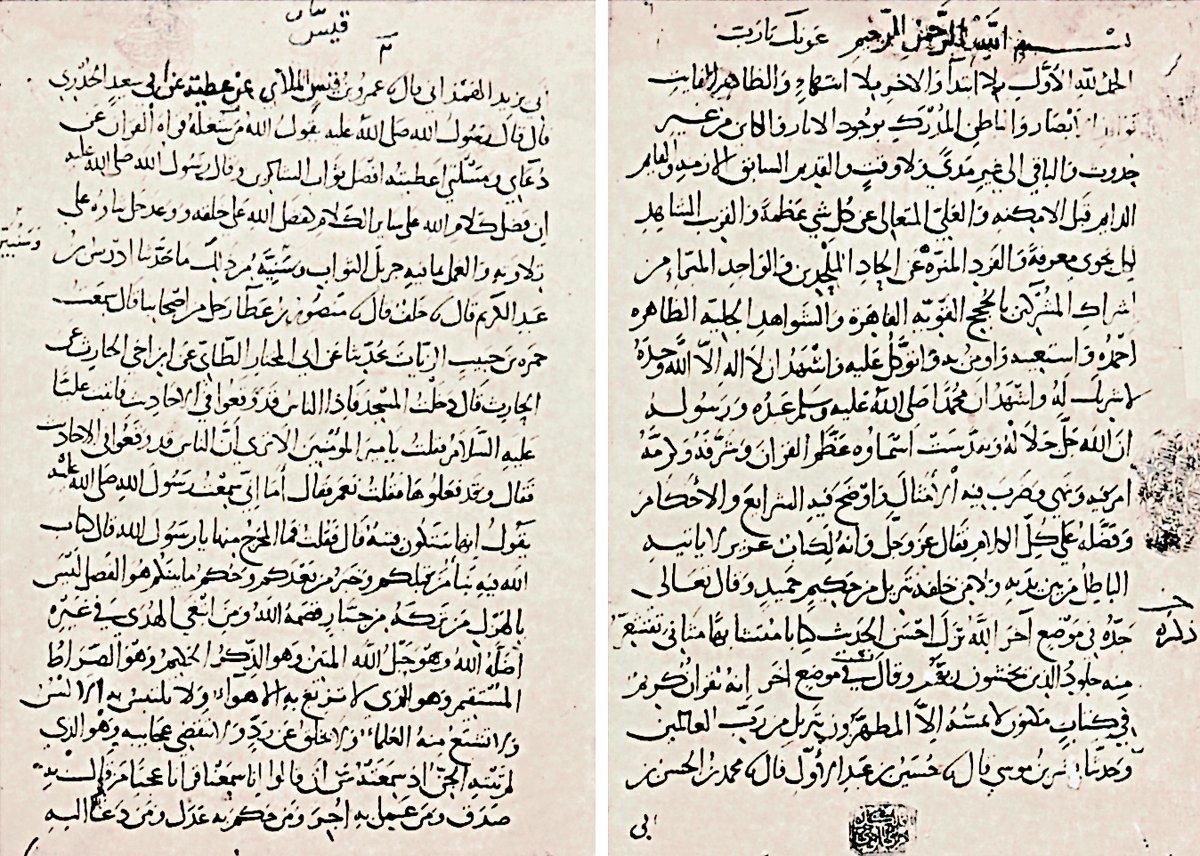 بسم الله الرحمن الرحيم عونك يا رب
الحمد لله الأول بلا ابتدا والاخر بلا انتهاء والظاهر
ابصار والباطن المدرك بوجود الاثار والكاين من غير
حدوث والباقي الى غير مدى ولا وقت والقدير السابق الازمنه والقاهر
الدايم قبل الامكنه والعلي المتعالي عن كل شي عظمة والقريب الشاهد
لكل نجوى معرفة والفرد المنزه عن الحاد الملحدين والواحد المتبرا من
اشراك المشركين بالحجج القويه القاهرة والشواهد الجليه الظاهره
احمده واستعينه واومن به واتوكل عليه واشهد ان لا اله الا الله وحده
لا شريك له واشهد ان محمدا صلى الله عليه وسلم عبده ورسوله
ان الله جل جلاله وتقدست اسماوه عظم القران وشرفه وكرمه
امر فيه ونهى وضرب فيه الامثال واوضح فيه الشرايع والاحكام
وفضله على كل الكلام فقال عز وجل وانه لكتاب عزيز لا ياتيه
الباطل من بين يديه ولا من خلفه تنزيل من حكيم حميد وقال تعالى
جل ذكره
جده في موضع آخر الله نزل احسن الحديث كتابا متشابها مثاني تقشعر
منه جلود الذين يخشون ربهم وقال في موضع اخر انه لقران كريم
في كتاب مكنون لا يمسه إلا المطهرون تنزيل من رب العالمين
وحدثنا بن موسى قال حسين بن عبد الأول قال محمد بن الحسن بن
ابي
قيس
ابي يزيد الهمذاني قال عمرو بن قيس الملائي عن عطية عن ابي سعيد الخدري
قال قال رسول الله صلى الله عليه يقول الله من شغله قراة القران عن
دعاي ومسئلتي اعطيته افضل ثواب الشاكرين وقال رسول الله صلى الله عليه
ان فضل كلام الله على ساير الكلام كفضل الله على خلقه ووعد جل ثناوه على
تلاوته والعمل بما فيه جزيل الثواب وسنبينه من ذلك ما حدثنا ادريس بن
وسنبين
عبد الكريم قال خلف قال منصور بن عطا رجل من اصحابنا قال سمعت
حمزة بن حبيب الزيات يحدثنا عن ابي المختار الطائي عن ابن اخي الحارث عن
الحارث قال دخلت المسجد فاذا الناس قد وقعوا في الاحاديث فاتيت عليا
عليه السلام فقلت يا امير المؤمنين الا ترى أن الناس قد وقعوا في الاحاديث
فقال وقد فعلوها فقلت نعم فقال أما إني سمعت رسول الله صلى الله عليه
يقول انها ستكون فتنة قال فقلت فما المخرج منها يا رسول الله قال كتاب
الله فيه نبأ من قبلكم وخبر من بعدكم وحكم ما بينكم هو الفصل ليس
بالهزل من تركه من جبار قصمه الله ومن ابتغى الهدى في غيره
اضله الله وهو حبل الله المتين وهو الذكر الحكيم وهو الصراط
المستقيم وهو الذي لا تزيغ به الاهوآء ولا تلتبس به الالسن
ولا تشبع منه العلماء ولا يخلق عن رد ولا تنقضي عجايبه وهو الذي
لم تنته الجن اذ سمعته حتى أن قالوا انا سمعنا قرآنا عجبا من قال به
صدق ومن عمل به اجر ومن حكم به عدل ومن دعا اليه